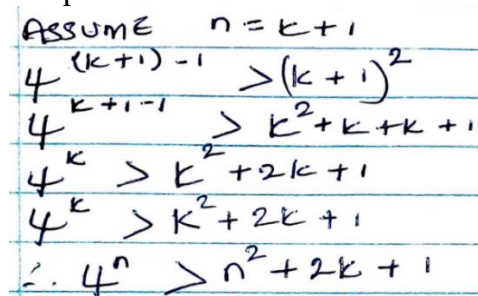 ASSUME n = k + 1
4^{(k+1)-1} > (k + 1)^2
4^{k+1-1} > k^2 + k + k + 1
4^k > k^2 + 2k + 1
4^k > k^2 + 2k + 1
∴ 4^n > n^2 + 2k + 1